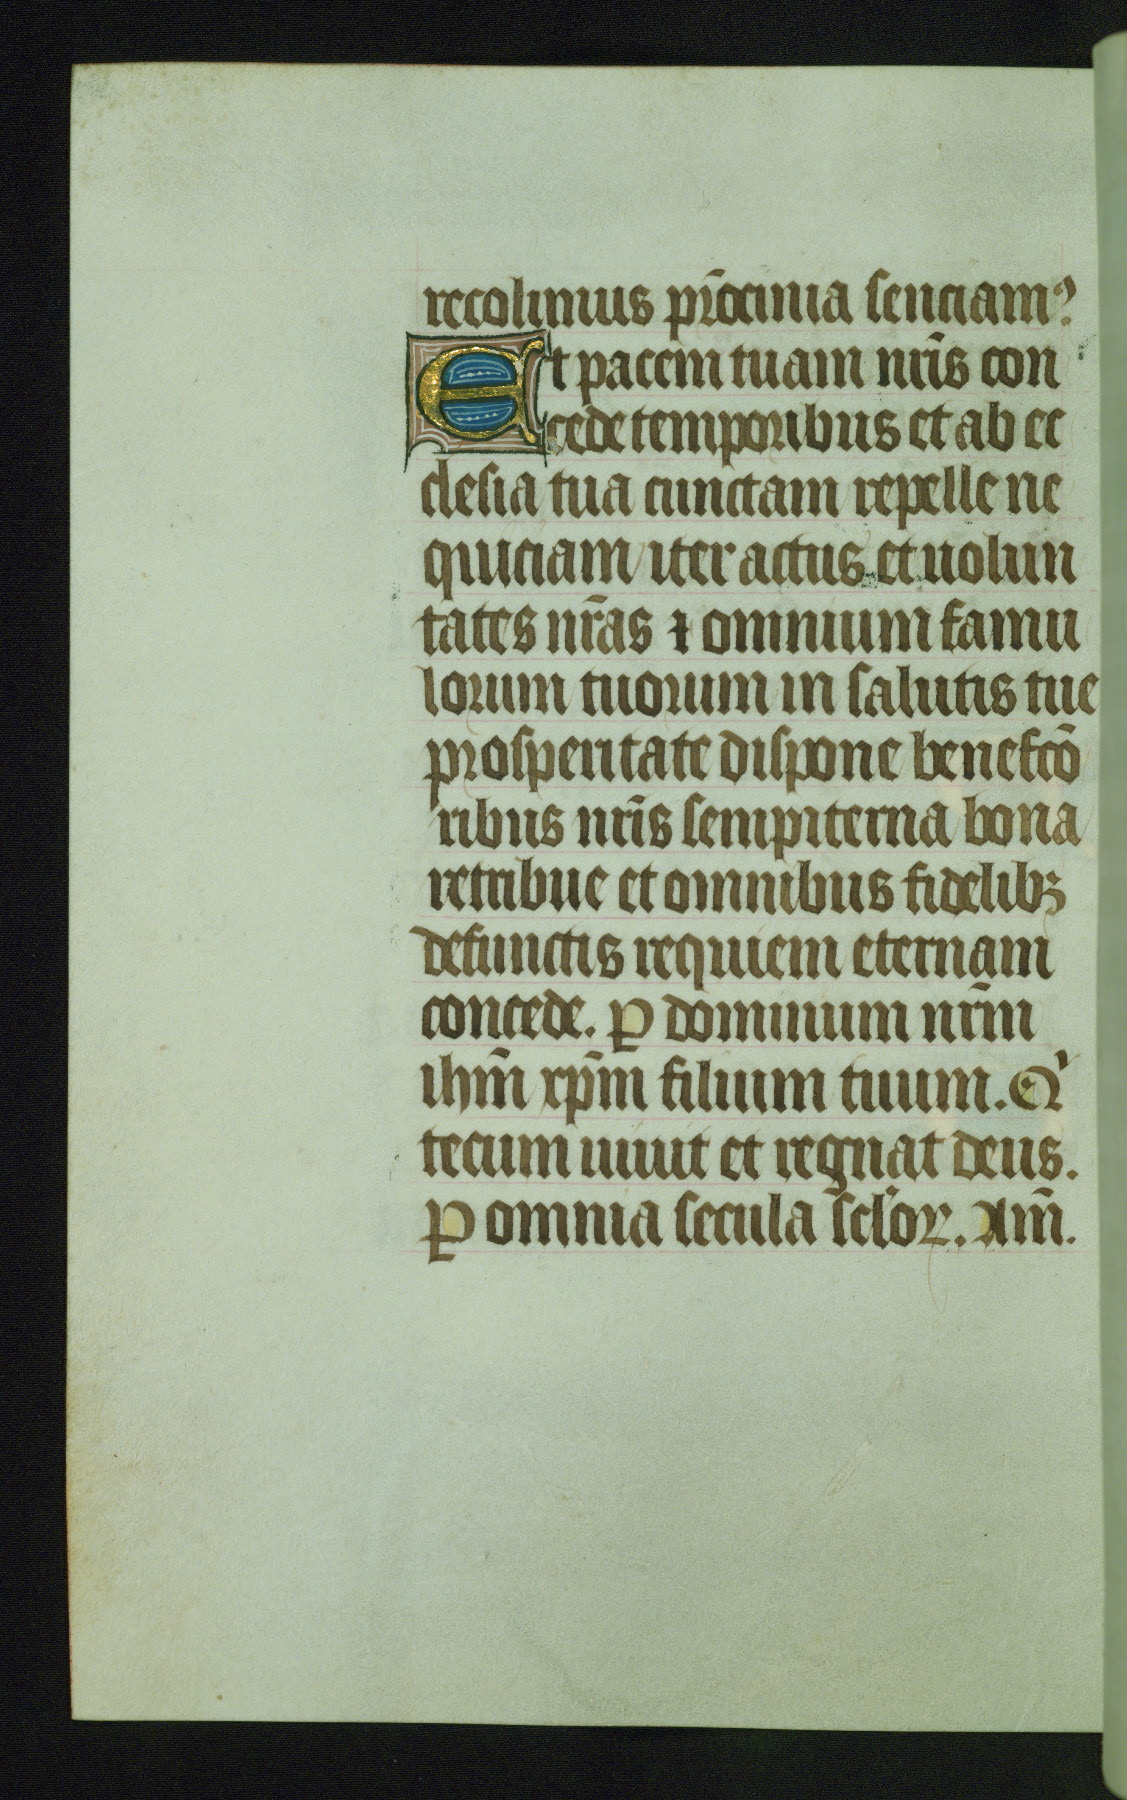 recolimus pr̄ocinia senciam?
Et pacem tuam nr̄is con
cede temporibus et ab ec
clesia tua cunctam repelle ne
quiciam iter actus et uolun
tates nr̄as ⁊ omnium famu
lorum tuorum in salutis tue
prosperitate dispone benefcō
ribus nr̄is sempiterna bona
retribue et omnibus fidelibꝫ
defunctis requiem eternam
concede. ꝑ dominum nr̄m
ihm̄ xp̄m filium tuum. Qͥ
tecum uiuit et regnat deus.
ꝑ omnia secula scl̄oꝝ. Am̄.